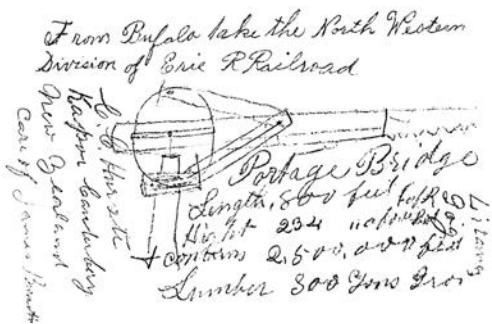 From Bufalo take the North Western
Division of Erie R Railroad
Portage Bridge
Length, 800 feet
Hight 234
contains 2,500,000 feet
Lumber 300 Tons Iron
C G
Kaipoi Canterbury
New Zealand
Care of James